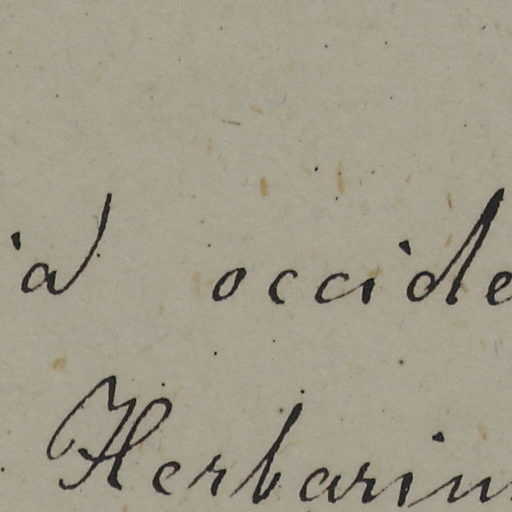 ia occide
Herbariu